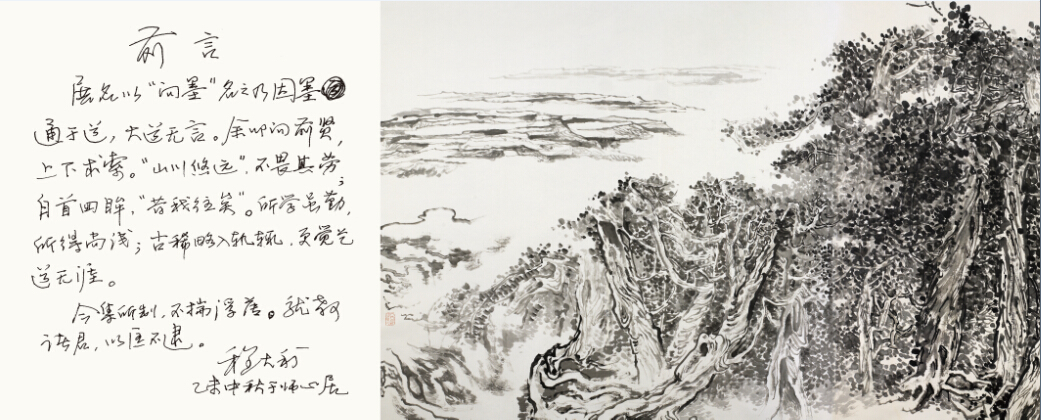 前言
展名以“问墨”名之乃因墨
通于道，大道无言。余叩问前贤，
上下求索。“山川悠远”，不畏其劳；
白首回眸，“昔我往矣”。所学虽勤，
所得尚浅；古稀略入轨辙，更觉艺
道无涯。
今集所制，不揣浮陋。就教
诸君，以匡不逮。
程大利
乙未中秋于师心居